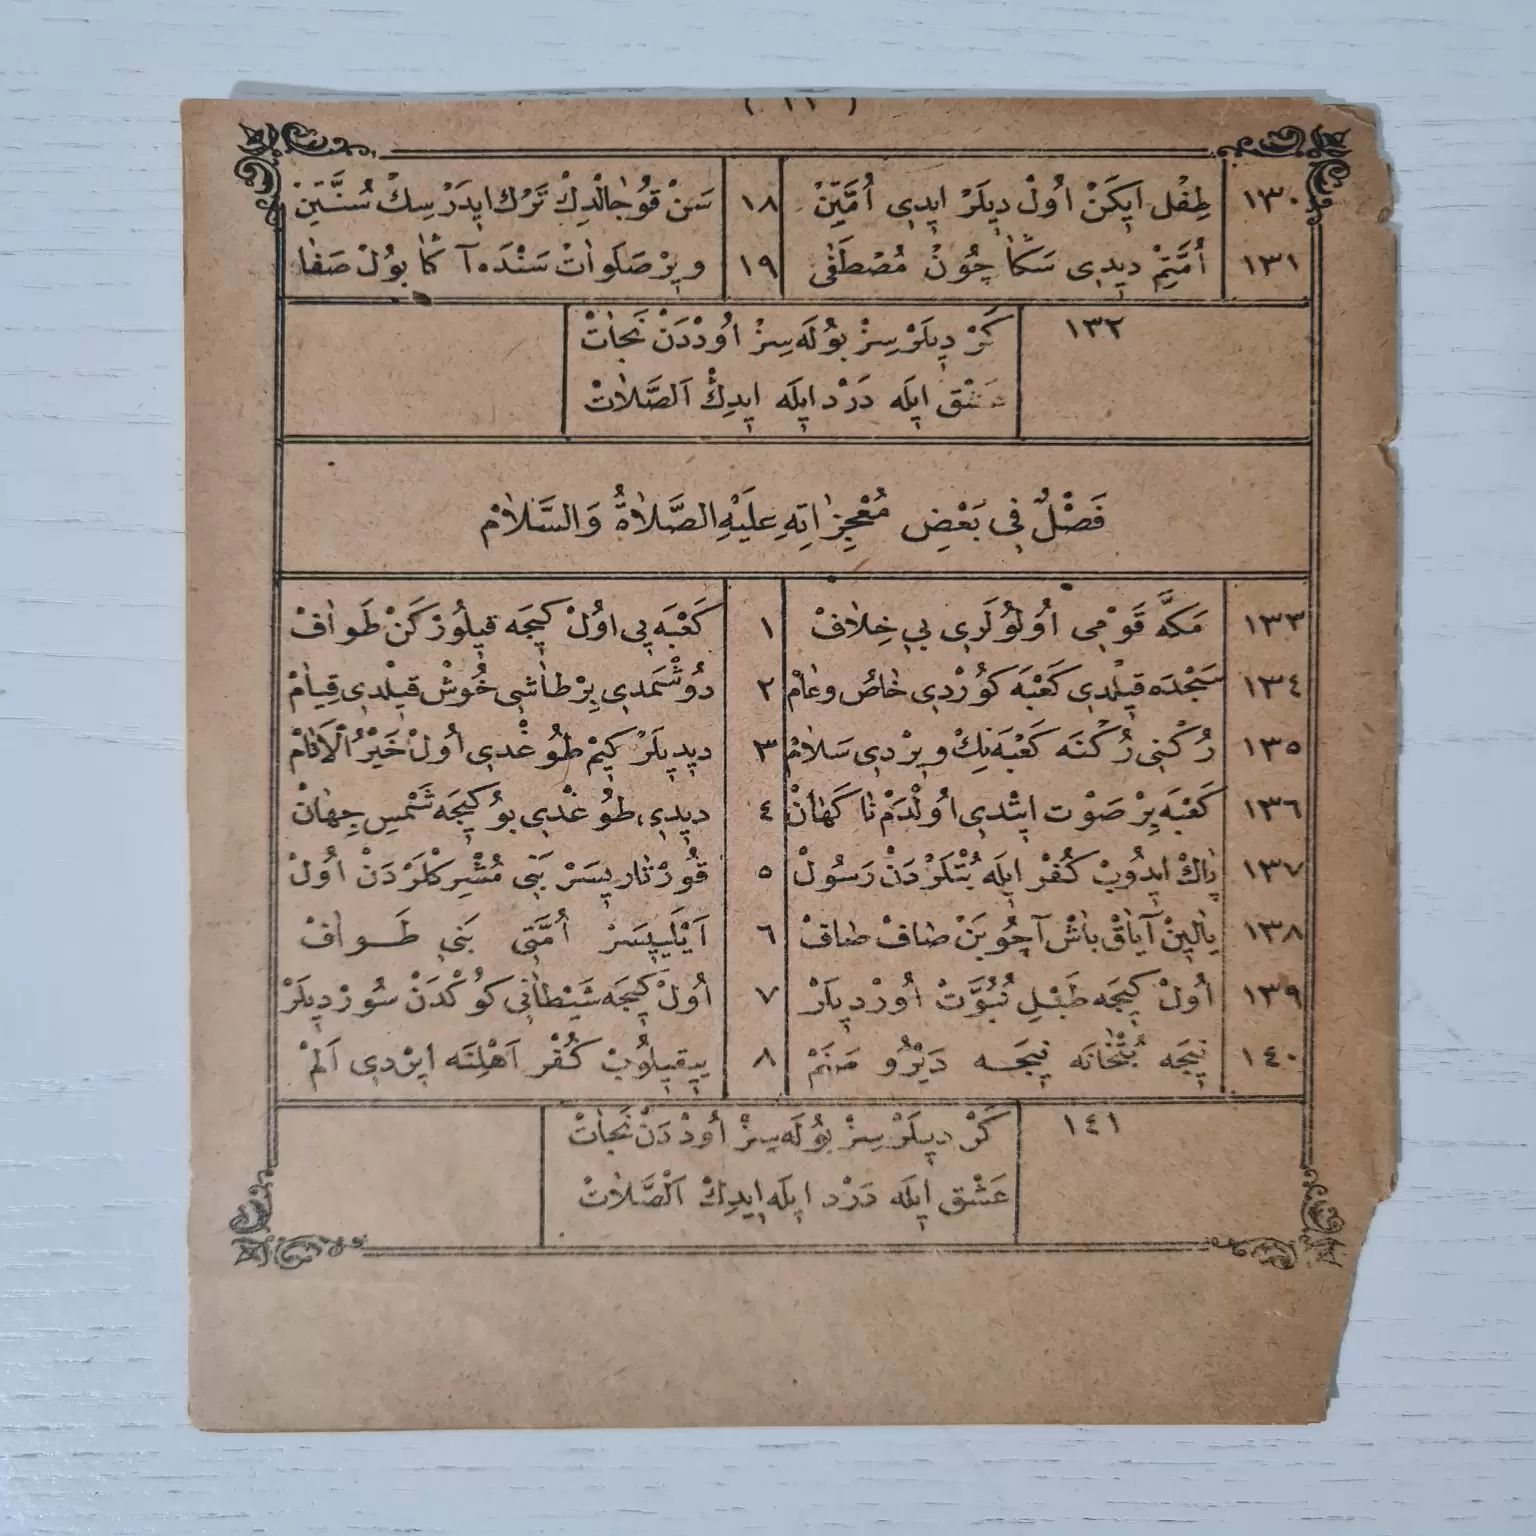 ( ١١ )
١٣٠ طِفْل ايكَنْ اُولْ ديلَرْ ايدى اُمَّتِنْ ١٨ سَنْ قوُجالْدِكْ تَرْك ايدَرْسِكْ سُنَّتِنْ
١٣١ اُمَّتِمْ ديدى سَكَا چُونْ مُصْطَفٰى ١٩ ويرْ صَلَوٰاتْ سَنْدَه آكَا بوُلْ صَفَا
١٣٢ كَرْ ديلَرْسِزْ بوُلَه سِزْ اوُدْدَنْ نَجَاتْ
عَشْق ايلَه دَرْد ايلَه ايدِكْ اَلصَّلَاتْ
فَصْلٌ فى بَعْضِ مُعْجِزَاتِهِ عَلَيْهِ الصَّلَاةُ وَالسَّلَامْ
١٣٣ مَكَّه قَوْمى اُولوُلَرى بى خِلَافْ ١ كَعْبَه يى اوُلْ كيجَه قيلوُرْكَنْ طَوَافْ
١٣٤ سَجْدَه قيلْدى كَعْبَه كوُرْدى خَاصُ وعَامْ ٢ دوُشْمَدى بِرْ طَاشى خُوشْ قيلْدى قِيَامْ
١٣٥ رُكْنى رُكْنَه كَعْبَه نِكْ ويرْدى سَلَامْ ٣ ديديلَرْ كيمْ طوُغْدى اُولْ خَيْرُ الْاَنَامْ
١٣٦ كَعْبَه بِرْ صَوْت ايتْدى اوُلْدَمْ نَا كَهَانْ ٤ ديدى طوُغْدى بوُ كيجَه شَمْسِ جِهَانْ
١٣٧ پَاكْ ايدوُبْ كُفْر ايلَه بُتْلَرْدَنْ رَسُولْ ٥ قوُرْتَاريسَرْ بَنى مُشْرِكْلَرْدَنْ اُولْ
١٣٨ يَالينْ آيَاقْ بَاشْ آچوُبَنْ صَافْ صَافْ ٦ اَيْلَييسَرْ اُمَّتى بَنى طَوَافْ
١٣٩ اُولْ كيجَه طَبْلِ نُبُوَّتْ اُورْديلَرْ ٧ اُولْ كيجَه شَيْطَانى كوُكْدَنْ سوُرْديلَرْ
١٤٠ نيجَه بُتْخَانَه نيجَه دَيْرُو صَنَمْ ٨ ييقيلوُبْ كُفْر اَهْلِنَه ايرْدى اَلَمْ
١٤١ كَرْ ديلَرْسِزْ بوُلَه سِزْ اُودْدَنْ نَجَاتْ
عَشْق ايلَه دَرْد ايلَه ايدِكْ اَلصَّلَاتْ